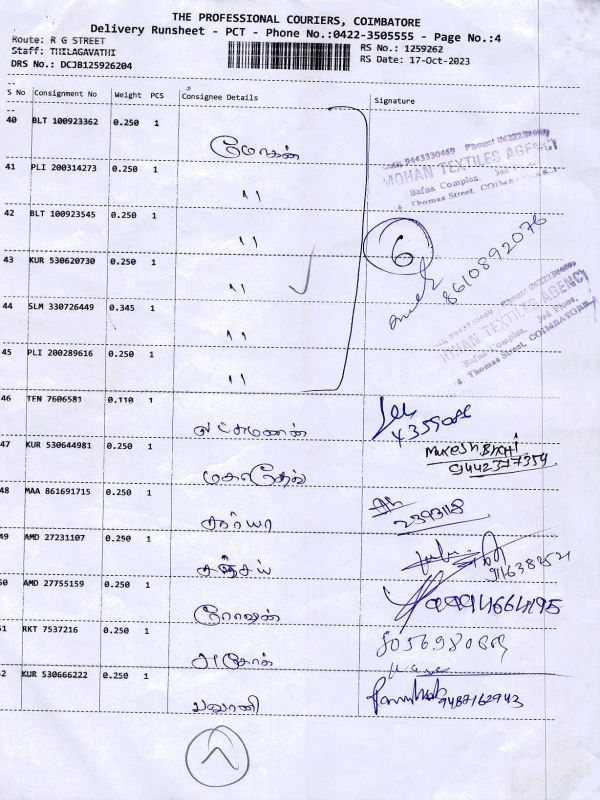 THE PROFESSIONAL COURIERS, COIMBATORE
Delivery Runsheet - PCT - Phone No.:0422-3505555 - Page No.:4
Route: R G STREET
Staff: THILAGAVATHI
DRS No.: DCJB125926204
RS No.: 1259262
RS Date: 17-Oct-2023
S No Consignment No Weight PCS Consignee Details Signature
40 BLT 100923362 0.250 1 மோகன்
MOHAN TEXTILES AGENCY
Bafaa Complex,
Thomas Street,
41 PLI 200314273 0.250 1 "
42 BLT 100923545 0.250 1 "
6
8610892076
43 KUR 530620730 0.250 1 "
44 SLM 330726449 0.345 1 "
MOHAN TEXTILES AGENCY
Bafaa Complex, 3rd Floor,
Thomas Street, COIMBATORE
45 PLI 200289616 0.250 1 "
46 TEN 7606581 0.110 1 லட்சுமணன்
47 KUR 530644981 0.250 1 மகாதேவ்
9442377359
48 MAA 861691715 0.250 1 சூர்யா
2393118
49 AMD 27231107 0.250 1 சஞ்சய்
50 AMD 27755159 0.250 1 ரோஷன்
9994664195
51 RKT 7537216 0.250 1 அசோக்
52 KUR 530666222 0.250 1 பவானி
9487162943